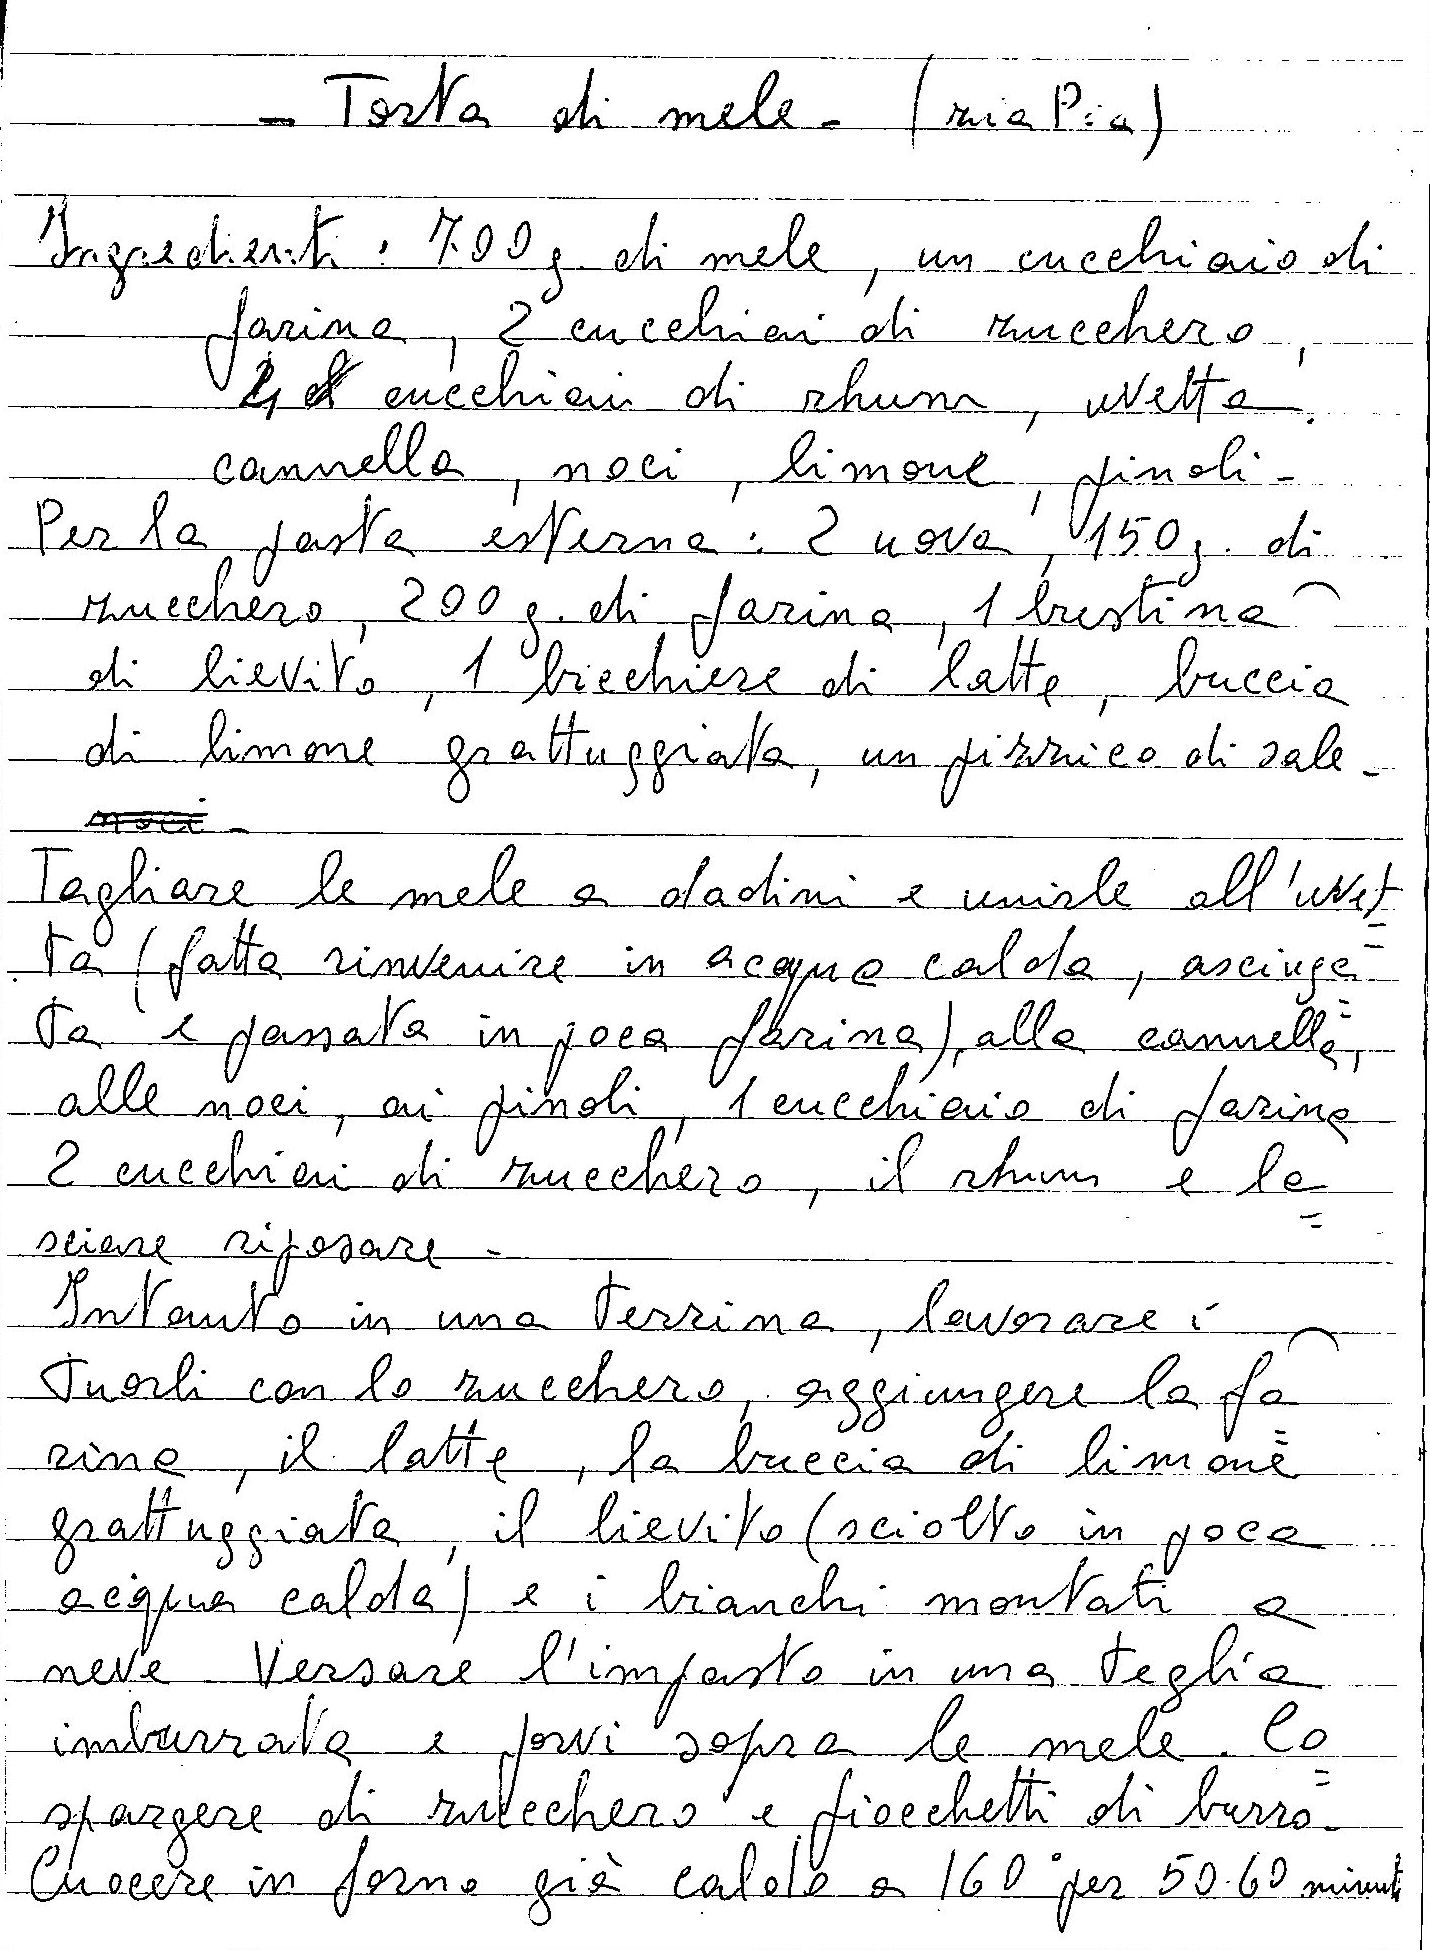 - Torta di mele - (zia Pia)
Ingredienti : 700 g. di mele, un cucchiaio di
farina, 2 cucchiai di zucchero,
2 cucchiai di rhum, uvetta,
cannella, noci, limone, pinoli -
Per la pasta esterna : 2 uova, 150 g. di
zucchero, 200 g. di farina, 1 bustina
di lievito, 1 bicchiere di latte, buccia
di limone grattuggiata, un pizzico di sale -
noci -
Tagliare le mele a dadini e unirle all'uvet=
ta (fatta rinvenire in acqua calda, asciuga=
ta e passata in poca farina), alla cannella,
alle noci, ai pinoli, 1 cucchiaio di farina
2 cucchiai di zucchero, il rhum e la=
sciare riposare -
Intanto in una terrina, lavorare i
tuorli con lo zucchero, aggiungere la fa=
rina, il latte, la buccia di limone
grattuggiata, il lievito (sciolto in poca
acqua calda) e i bianchi montati a
neve. Versare l'impasto in una teglia
imburrata e porvi sopra le mele. Co=
spargere di zucchero e fiocchetti di burro -
Cuocere in forno già caldo a 160° per 50-60 minuti